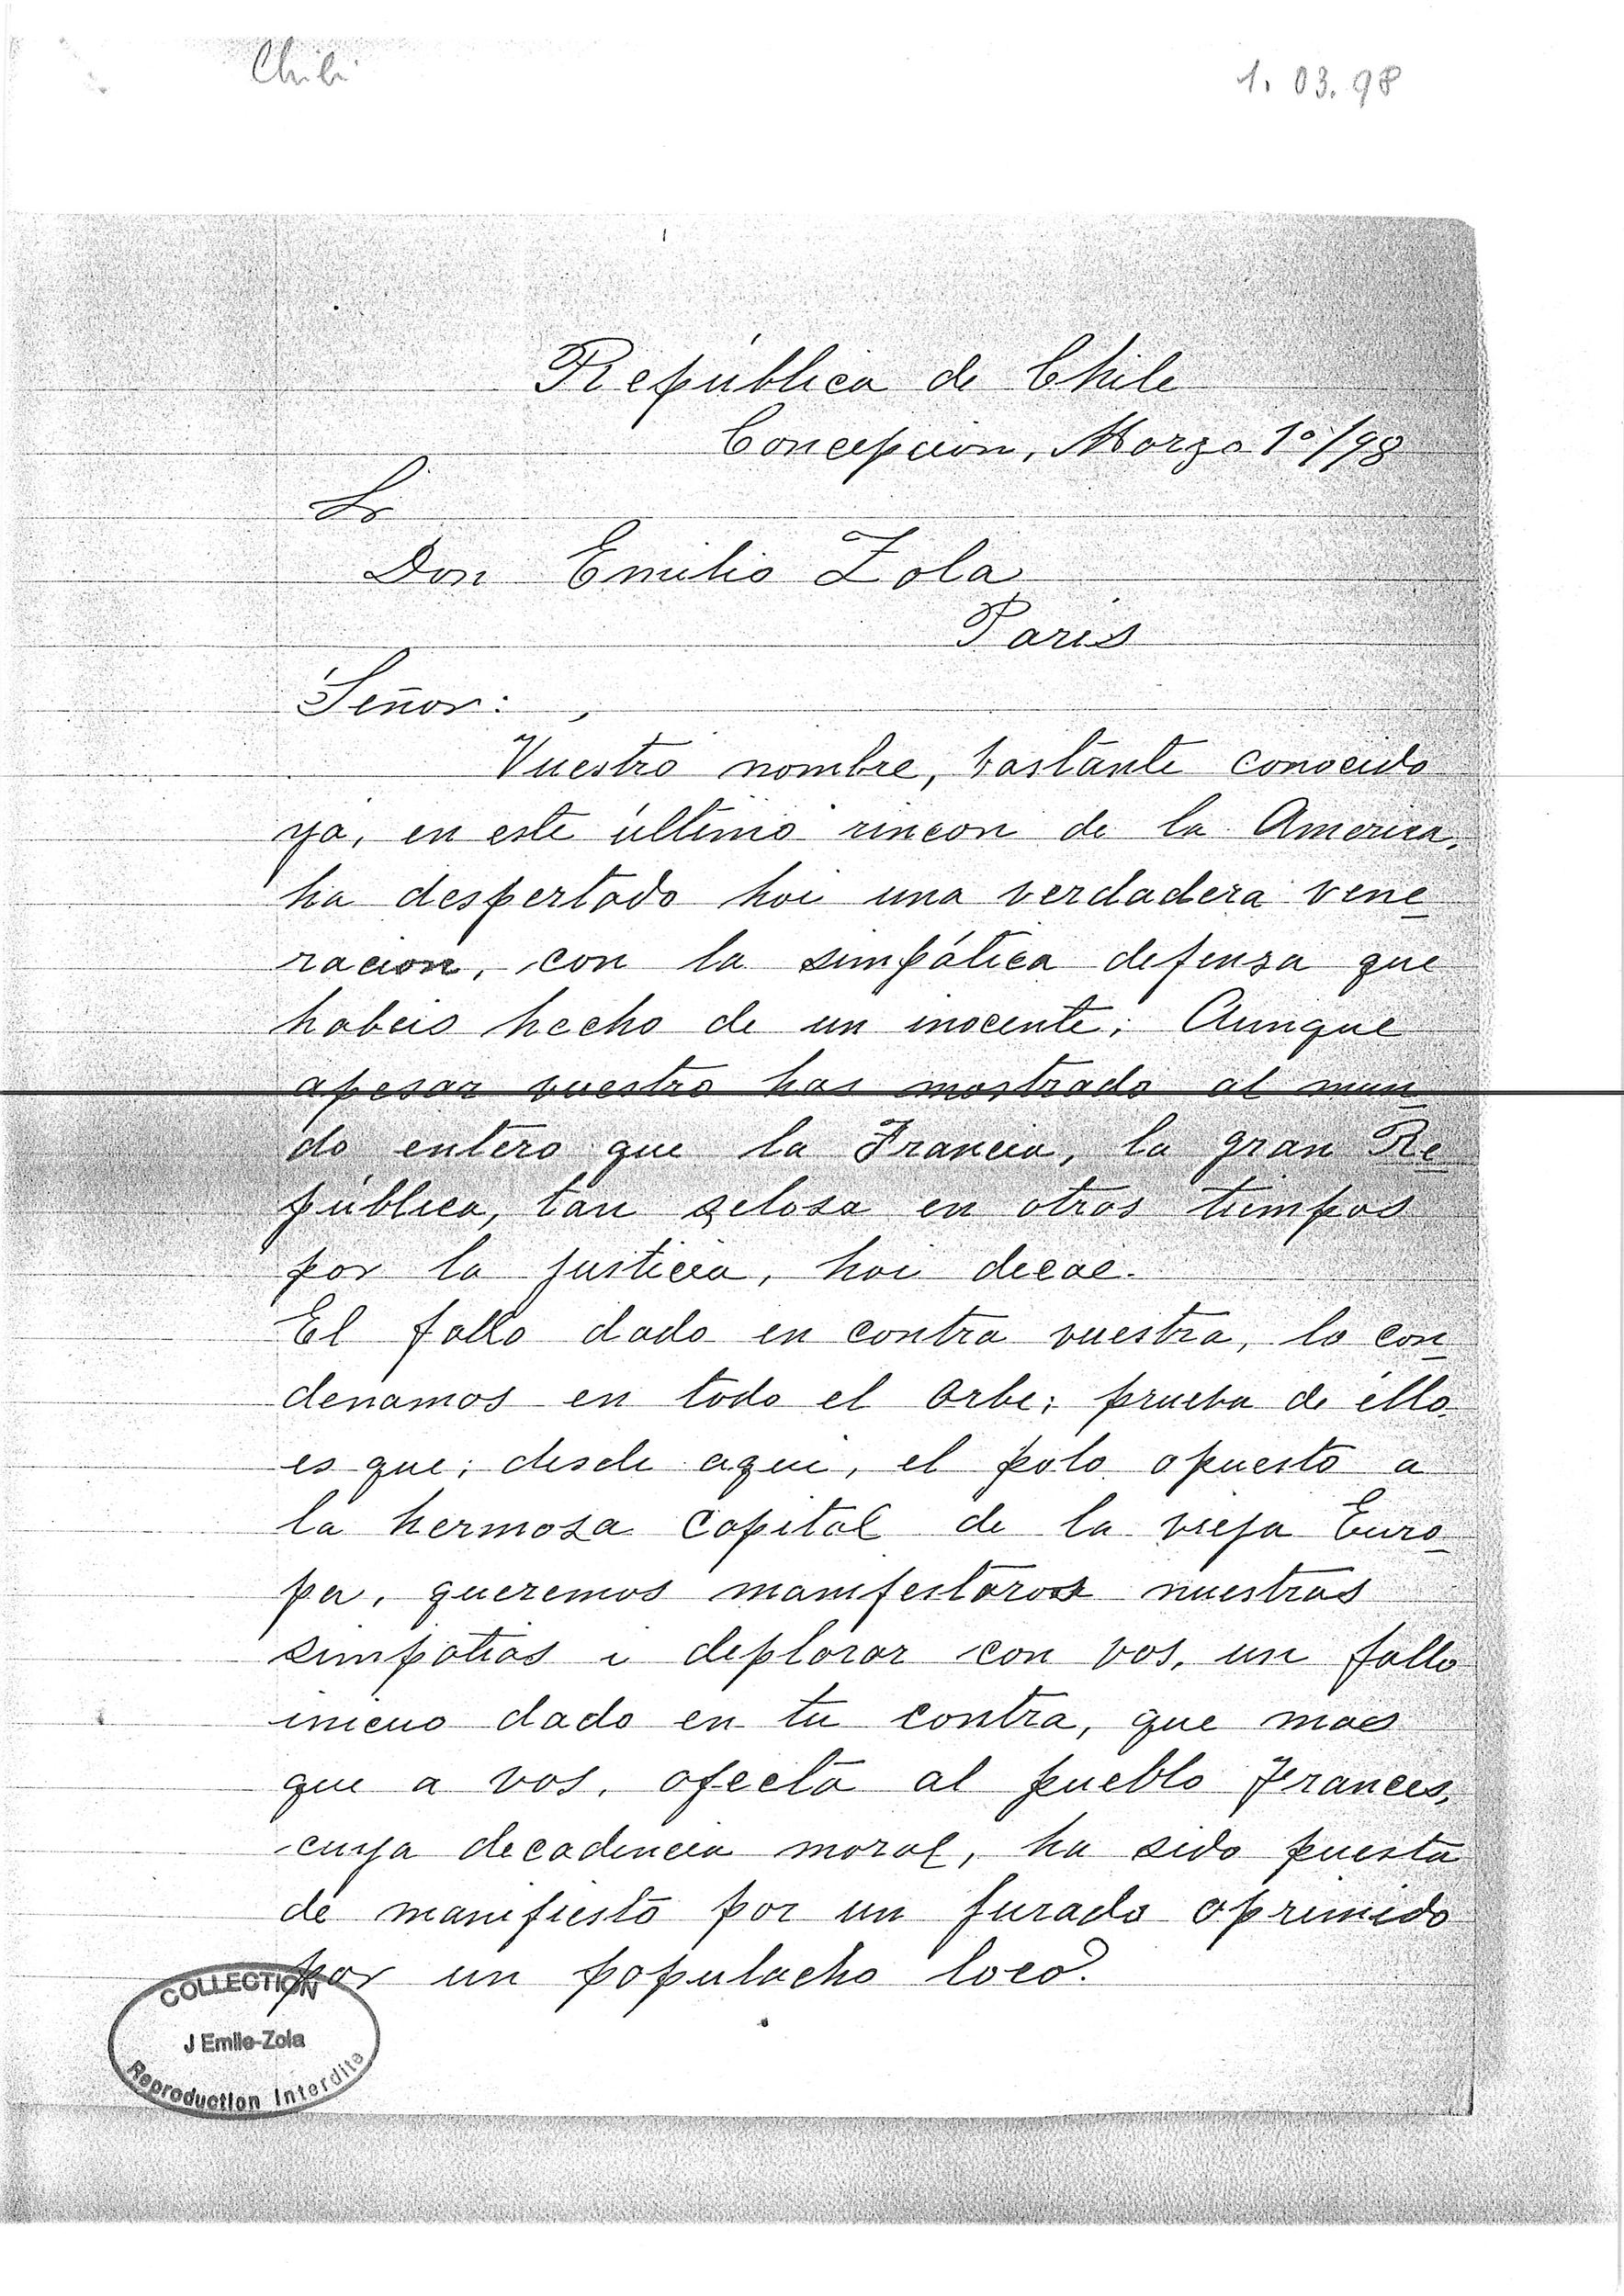 Chili
1. 03. 98
República de Chile
Concepcion, Marzo 1º/98
Sr
Don Emilio Zola
Paris
Señor:
Vuestro nombre, bastante conocido
ya, en este último rincon de la America,
ha despertado hoi una verdadera vene
racion, con la simpática defensa que
habeis hecho de un inocente; Aunque
apesar vuestro has mostrado al mun
do entero que la Francia, la gran Re
pública, tan zelosa en otros tiempos
por la justicia, hoi decae.
El fallo dado en contra vuestra, lo con
denamos en todo el orbe; prueba de éllo
es que; desde aqui, el polo opuesto a
la hermosa capital de la vieja Euro
pa, queremos manifestaros nuestras
simpatias i deplorar con vos, un fallo
inicuo dado en tu contra, que mas
que a vos, afecta al pueblo Frances,
cuya decadencia moral, ha sido puesta
de manifiesto por un jurado oprimido
por un populacho loco.
COLLECTION
J Emile-Zola
Reproduction Interdite